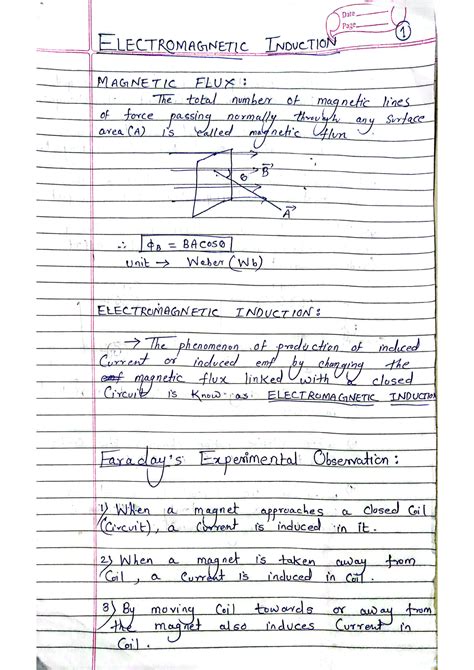 Date
Page
1
ELECTROMAGNETIC INDUCTION
MAGNETIC FLUX:
The total number of magnetic lines
of force passing normally through any surface
area (A) is called magnetic flux
θ
B
A
∴ ϕB = BACosθ
Unit → Weber (Wb)
ELECTROMAGNETIC INDUCTION:
→ The phenomenon of production of induced
Current or induced emf by changing the
emf magnetic flux linked with a closed
Circuit is know as ELECTROMAGNETIC INDUCTION
Faraday's Experimental Observation:
1) When a magnet approaches a closed Coil
(Circuit), a Current is induced in it.
2) When a magnet is taken away from
Coil, a Current is induced in Coil.
3) By moving Coil towards or away from
the magnet also induces Current in
Coil.